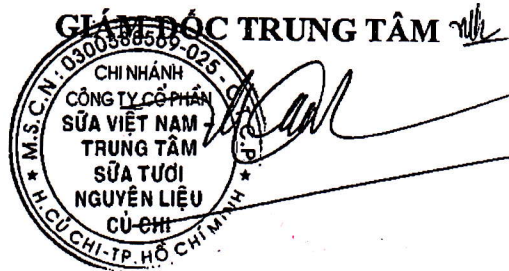 GIÁM ĐỐC TRUNG TÂM
M.S.C.N: 0300588569-025 - C.T.C.P
CHI NHÁNH
CÔNG TY CỔ PHẦN
SỮA VIỆT NAM -
TRUNG TÂM
SỮA TƯƠI
NGUYÊN LIỆU
CỦ CHI
★ H. CỦ CHI - TP. HỒ CHÍ MINH ★